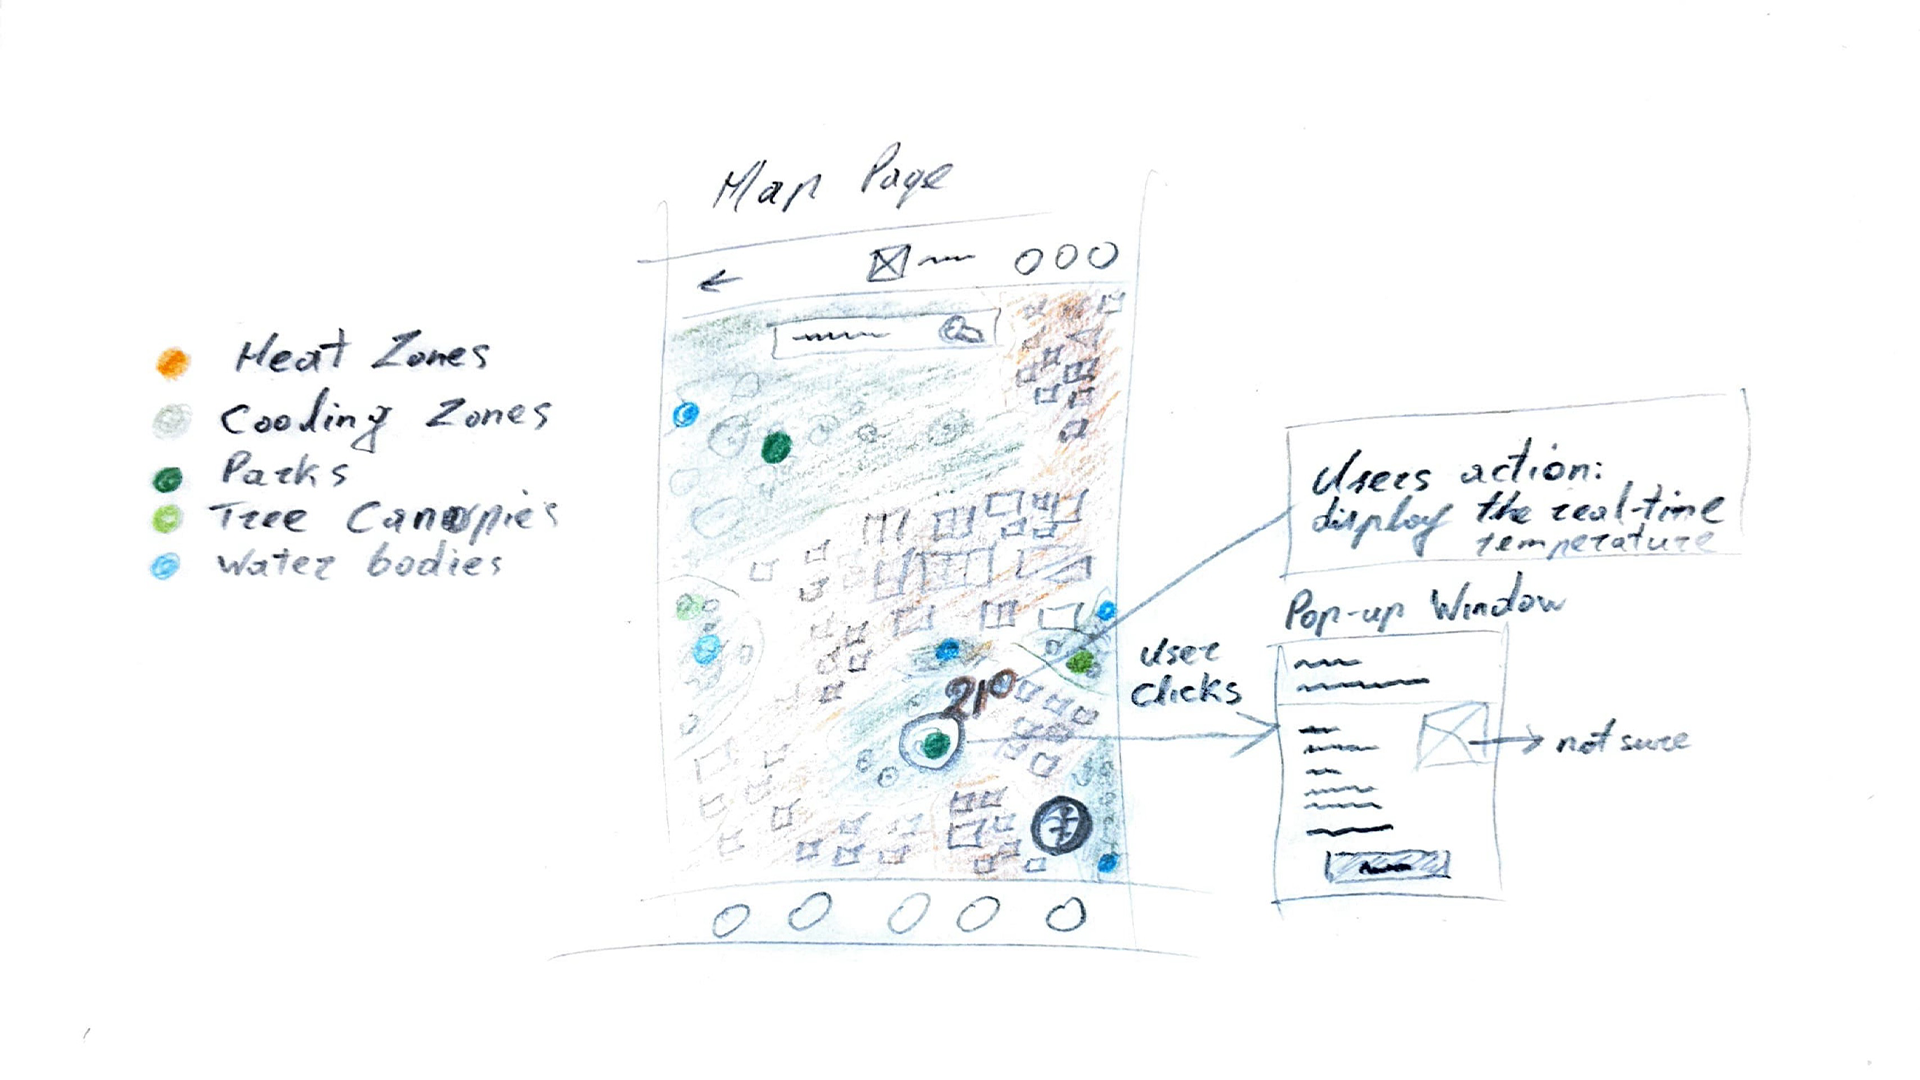 Map Page
Heat Zones
Cooling Zones
Parks
Tree Canopies
Water bodies
21°
Users action:
display the real-time
temperature
Pop-up Window
User
clicks
not sure